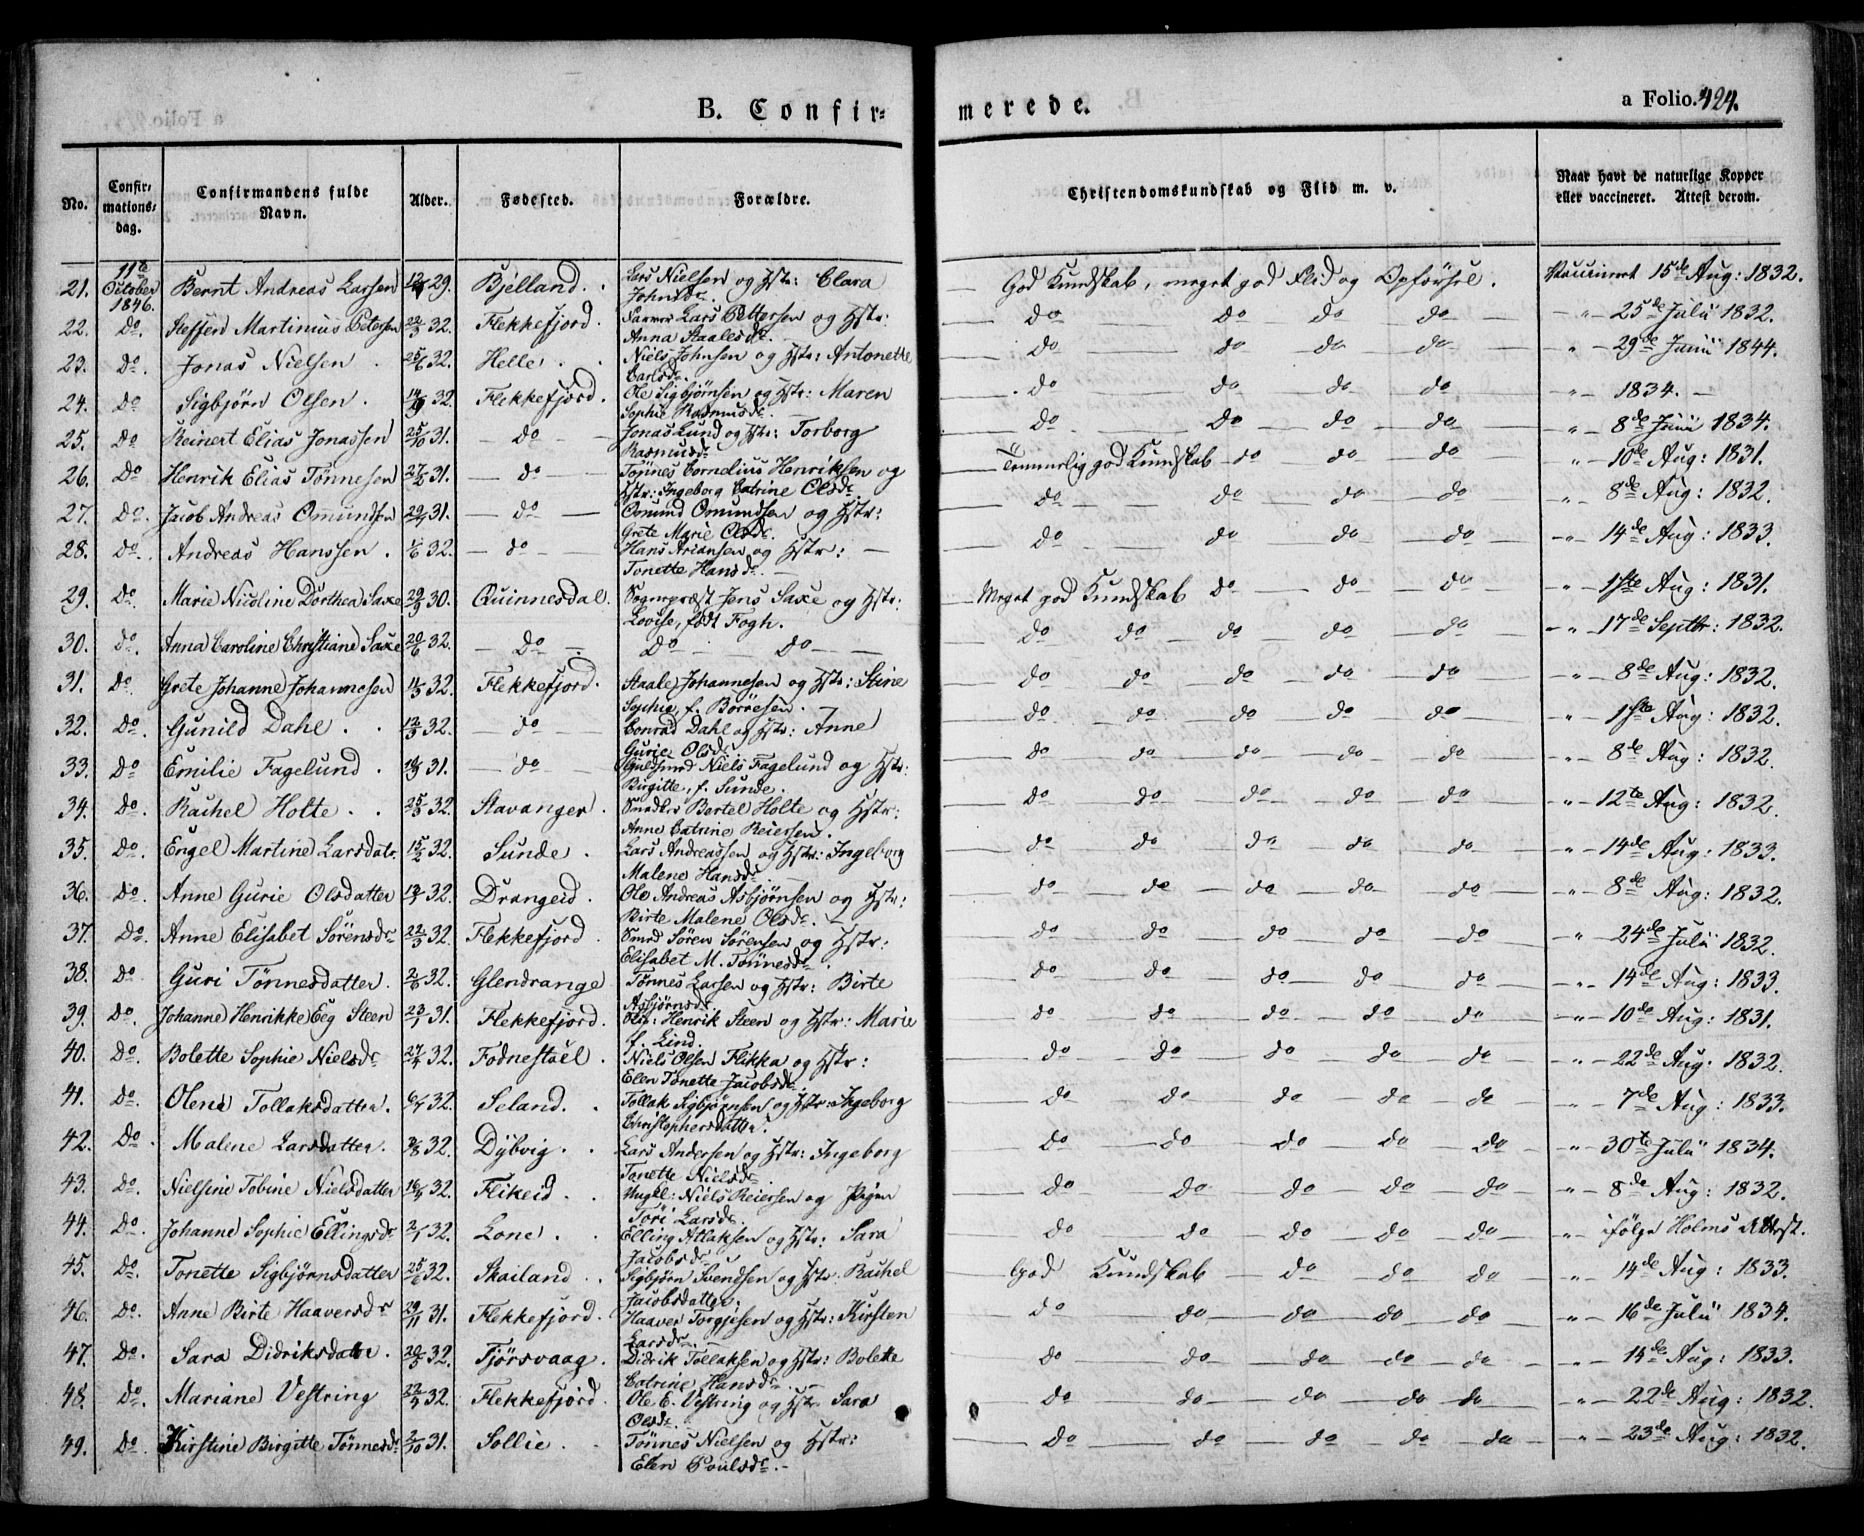 B. Confir=
merede.
a Folio. 424.
No.
Confir=
mations=
dag.
Confirmandens fulde
Navn.
Alder.
Fødested.
Forældre.
Christendomskundskab og Flid m. v.
Naar havt de naturlige Kopper
eller vaccineret. Attest derom.
11te
October
1846.
21. Bernt Andreas Larsen 29. Bjelland. Lars Nielsen og Hstr: Clara Johnsd. God Kundskab, meget god Flid og Opførsel. Vaccineret 15de Aug: 1832.
22. Do. Steffen Martinius Petersen 22/3 32. Flekkefjord. Lars Pettersen og Hstr: Anna Staalesd. do do do do — " — 25de Julii 1832.
23. Do. Jonas Nielsen 25/6 32. Helle. Niels Johnsen og Hstr: Antonette Carlsd. do do do do " 29de Junii 1844.
24. Do Sigbjørn Olsen. 14/9 32. Flekkefjord. Ole Sigbjørnsen og Hstr: Maren Sophie Rasmusd. do do do do " 1834.
25. Do Reinert Elias Jonassen 25/10 31. do Jonas Lund og Hstr: Torborg Rasmusd. do do do do " 8de Junii 1834.
26. Do Henrik Elias Tønnesen 27/2 31. do Tønnes Cornelius Henriksen og Hstr: Ingeborg Catrine Olsd. Temmelig god Kundskab do do do " 10de Aug: 1831.
27. Do. Jacob Andreas Omundsen 31. do Omund Omundsen og Hstr: Grete Marie Olsd. do do do do " 8de Aug: 1832.
28. Do. Andreas Hanssen. 1/6 32. do Hans Ariansen og Hstr: Tonette Hansd. do do do do " 14de Aug: 1833.
29. Do. Marie Nicoline Dorthea Saxe 29/3 30. Quinnesdal. Sognepræst Jens Saxe og Hstr: Lovise, født Fogh. Meget god Kundskab do do do " 1ste Aug: 1831.
30. Do. Anna Caroline Christiane Saxe 20/6 32. Do Do Do do do do do do " 17de Septbr: 1832.
31. Do Grete Johanne Johannesen 14/3 32. Flekkefjord. Staale Johannesen og Hstr: Stine Sophie, f. Børresen. do do do do do " 8de Aug: 1832.
32. Do. Gunild Dahl. 13/3 32. do Conrad Dahl og Hstr: Anne Gurie Olsd. do do do do do " 1ste Aug: 1832.
33. Do Emilie Fagelund. 31. do Guldsmed Niels Fagelund og Hstr: Birgitte, f. Sunde. do do do do do " 8de Aug: 1832.
34. Do. Rachel Holte. 25/3 32. Stavanger. Bertel Holte og Hstr: Anne Catrine Reiersen. do do do do do " 12te Aug: 1832.
35. Do. Engel Martine Larsdatr. 15/2 32. Sunde. Lars Andreassen og Hstr: Ingeborg Malene Hansd. do do do do do " 14de Aug: 1833.
36. Do. Anne Gurie Olsdatter 32. Drangeid. Ole Andreas Asbjørnsen og Hstr: Birte Malene Olsd. do do do do do " 8de Aug: 1832.
37. Do. Anne Elisabet Sørensdr 22/3 32. Flekkefjord. Smed Søren Sørensen og Hstr: Elisabet M. Tønnesd. do do do do do " 24de Julii 1832.
38. Do Guri Tønnesdatter. 2/6 32. Glendrange Tønnes Larsen og Hstr: Birte Asbjørnsdr. do do do do do " 14de Aug: 1833.
39. Do. Johanne Henrikke Eeg Steen 23/1 31. Flekkefjord. Henrik Steen og Hstr: Marie f. Lind. do do do do do " 10de Aug: 1831.
40. Do. Bolette Sophie Nielsd 27/4 32. Fodnestøel. Niels Olsen Flikka og Hstr: Elen Tonette Jacobsd. do do do do do " 22de Aug: 1832.
41. Do. Olene Tollaksdatter. 6/7 32. Seland. Tollak Sigbjørnsen og Hstr: Ingeborg Christophersdatter. do do do do do " 7de Aug: 1833.
42. Do. Malene Larsdatter. 32. Dybvig. Lars Andersen og Hstr: Ingeborg Tonette Nielsd. do do do do do " 30te Julii 1834.
43. Do. Nielsine Tobine Nielsdatter 32. Flikeid. Ungkl: Niels Reiersen og Pigen Tori Larsd. do do do do do " 8de Aug: 1832.
44. Do. Johanne Sophie Ellingsd 2/1 32. Lone. Elling Atlaksen og Hstr: Sara Jacobsdr. do do do do do " ifølge Holms Attest.
45. Do. Tonette Sigbjørnsdatter 25/6 32. Skailand. Sigbjørn Svendsen og Hstr: Rachel Jacobsdatter. God Kundskab do do do " 14de Aug: 1833.
46. Do. Anne Birte Haaversdr 29/11 31. Flekkefjord. Haaver Torgjesen og Hstr: Kirsten Larsdr. do do do do do " 16de Julii 1834.
47. Do. Sara Didriksdatter. 20/3 32. Tjørsvaag. Didrik Tollaksen og Hstr: Bolette Catrine Hansd. do do do do do " 14de Aug: 1833.
48. Do Mariane Vestring 22/5 32. Flekkefjord. Ole E. Vestring og Hstr Sara Olsd. do do do do do " 22de Aug: 1832.
49. Do Kirstine Birgitte Tønnesd 2/10 31. Sollie. Tønnes Nielsen og Hstr: Elen Poulsd. do do do do do " 23de Aug: 1832.